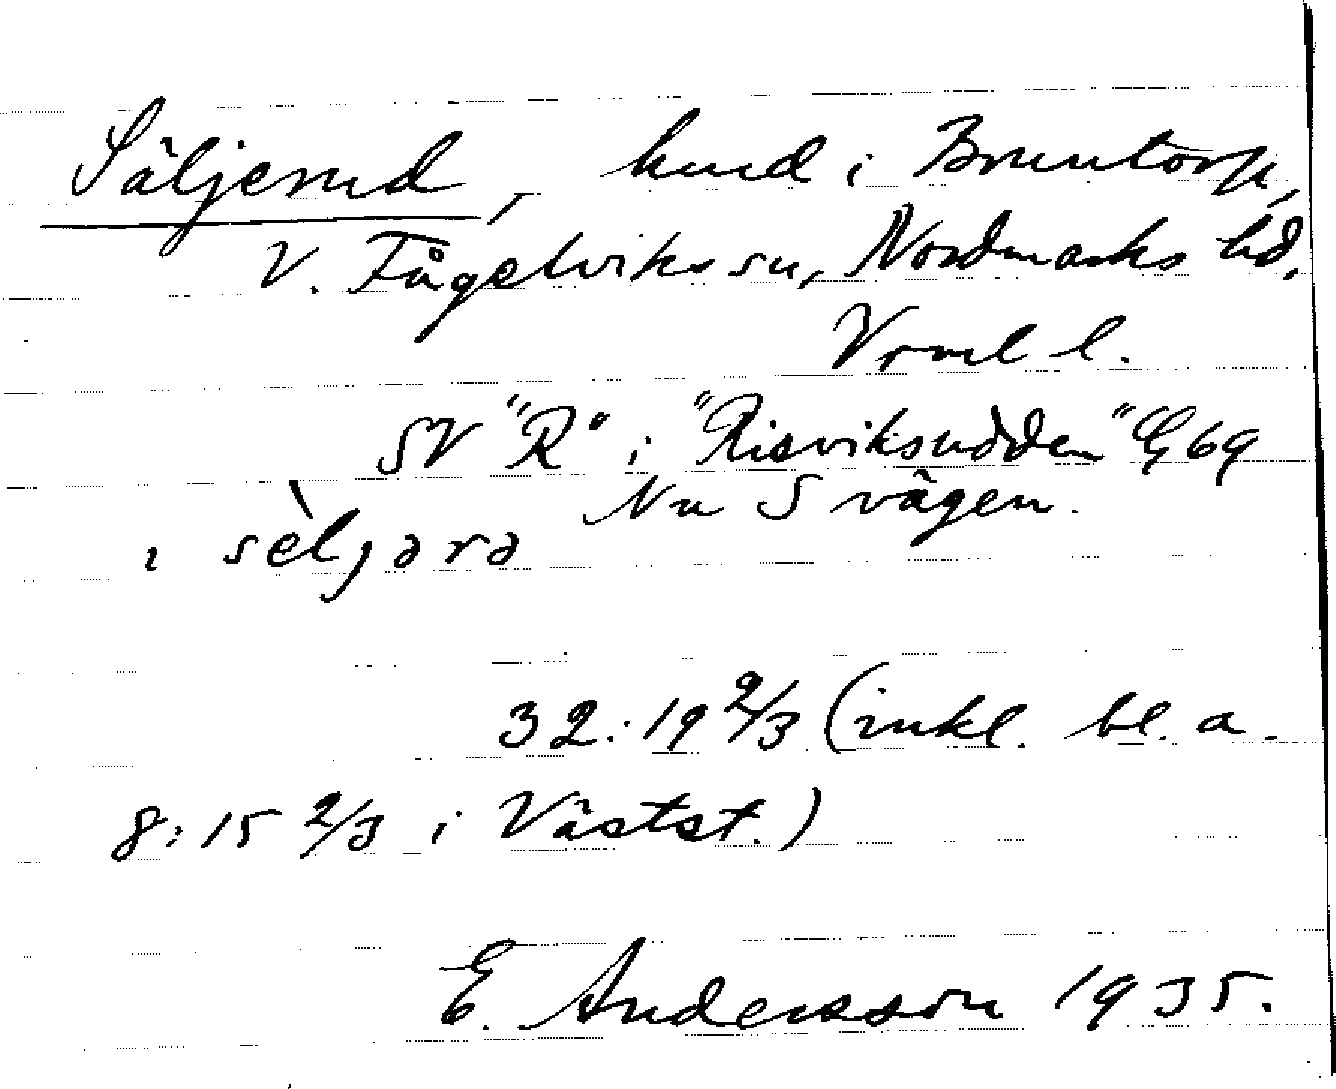 Säljerud, hmd i Bruntorp,
V. Fågelviks sn, Nordmarks hd,
Vrml l.
SV "R" i "Risviksudden" G 69
Nu S vägen.
i sèljərə
32:19 2/3 (inkl. bl. a.
8:15 2/3 i Västst.)
E. Andersson 1935.